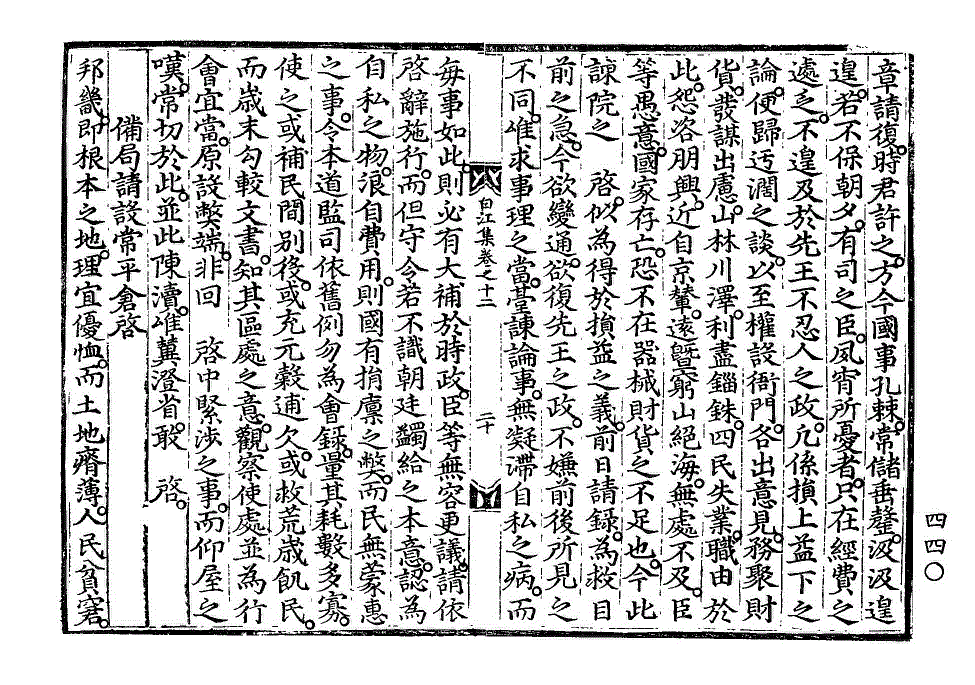 章請復。時君許之。方今國事孔棘。常儲垂罄。汲汲遑
遑。若不保朝夕。有司之臣。夙宵所憂者。只在經費之
處乏。不遑及於先王不忍人之政。凡係損上益下之
論。便歸迂濶之談。以至權設衙門。各出意見。務聚財
貨。發謀出慮。山林川澤。利盡錙銖。四民失業。職由於
此。怨咨朋興。近自京輦。遠曁窮山絕海。無處不及。臣
等愚意。國家存亡。恐不在器械財貨之不足也。今此
諫院之 啓。似為得於損益之義。前日請錄。為救目
前之急。今欲變通。欲復先王之政。不嫌前後所見之
不同。唯求事理之當。臺諫論事。無凝滯自私之病。而
白江集卷之十二 二十
每事如此。則必有大補於時政。臣等無容更議。請依
啓辭施行。而但守令若不識朝廷蠲給之本意。認為
自私之物。浪自費用。則國有捐廩之弊。而民無蒙惠
之事。令本道監司依舊例勿為會錄。量其耗數多寡。
使之或補民間別役。或充元糓逋欠。或救荒歲飢民。
而歲末勾較文書。知其區處之意。觀察使處並為行
會宜當。原設弊端。非回 啓中緊涉之事。而仰屋之
嘆。常切於此。並此陳瀆。唯冀澄省。敢 啓。
備局請設常平倉啓
邦畿。即根本之地。理宜優恤。而土地瘠薄。人民貧窘。
四四〇